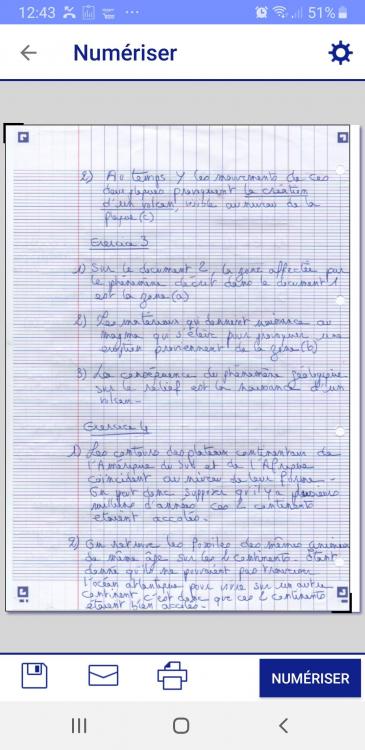 12:43 ... 51%
← Numériser
2) Au temps Y les mouvements de ces
deux plaques provoquent la création
d'un volcan, visible au niveau de la
(c)
Exercice 3
1) Sur le document 2, la zone affectée par
le phénomène décrit dans le document 1
est la zone (a)
2) Les matériaux qui donnent naissance au
magma qui s'élève pour provoquer une
éruption proviennent de la zone (b)
3) La conséquence du phénomène géologique
sur le relief est la naissance d'un
volcan.
Exercice 4
1) Les contours des plateaux continentaux de
l'Amérique du Sud et de l'Afrique
coincident au niveau de leur forme.
On peut donc supposer qu'il y a plusieurs
millions d'années ces 2 continents
étaient accolés.
2) On retrouve les fossiles des mêmes animaux
de même âge sur les 2 continents. Étant
donné qu'ils ne pouvaient pas traverser
l'océan atlantique pour vivre sur un autre
continent, c'est donc que ces 2 continents
étaient bien accolés.
NUMÉRISER